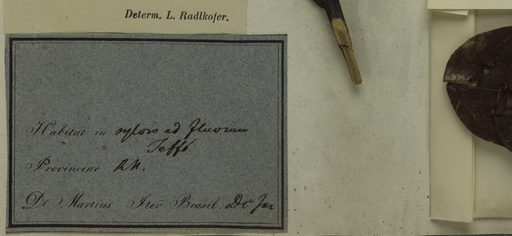 Determ. L. Radlkofer.
Habitat in sylvis ad fluvium
Teffé
Provinciae R.N.
Dr Martius Iter Brasil.